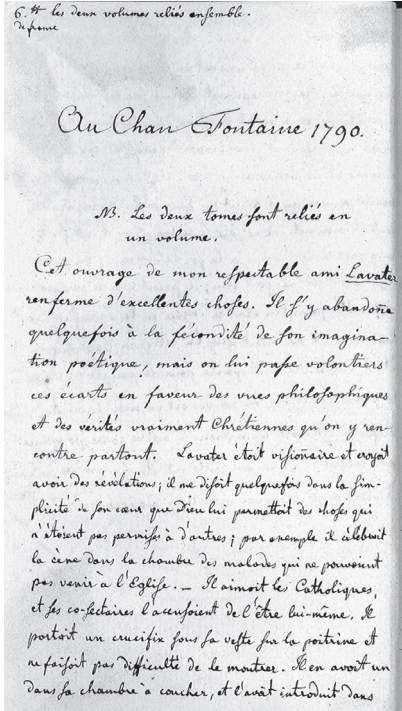 6.tt les deux volumes reliés ensemble.
de france
Au Chan Fontaine 1790.
NB. Les deux tomes sont reliés en
un volume.
Cet ouvrage de mon respectable ami Lavater
renferme d'excellentes choses. Il s'y abandoñe
quelquefois à la fécondité de son imagina-
tion poétique, mais on lui passe volontiers
ces écarts en faveur des vues philosophiques
et des vérités vraiment Chrétiennes qu'on y ren-
contre partout. Lavater étoit visionaire et croyoit
avoir des révélations; il me disoit quelquefois dans la sim-
plicité de son cœur que Dieu lui permettoit des choses qui
n'étoient pas permises à d'autres; par exemple il célébroit
la cène dans la chambre des malades qui ne pouvoient
pas venir à l'Eglise. — Il aimoit les Catholiques,
et ses co-sectaires l'accusoient de l'être lui-même. Il
portoit un crucifix sous sa veste sur la poitrine et
ne faisoit pas difficulté de le montrer. Il en avoit un
dans sa chambre à coucher, et l'avoit introduit dans